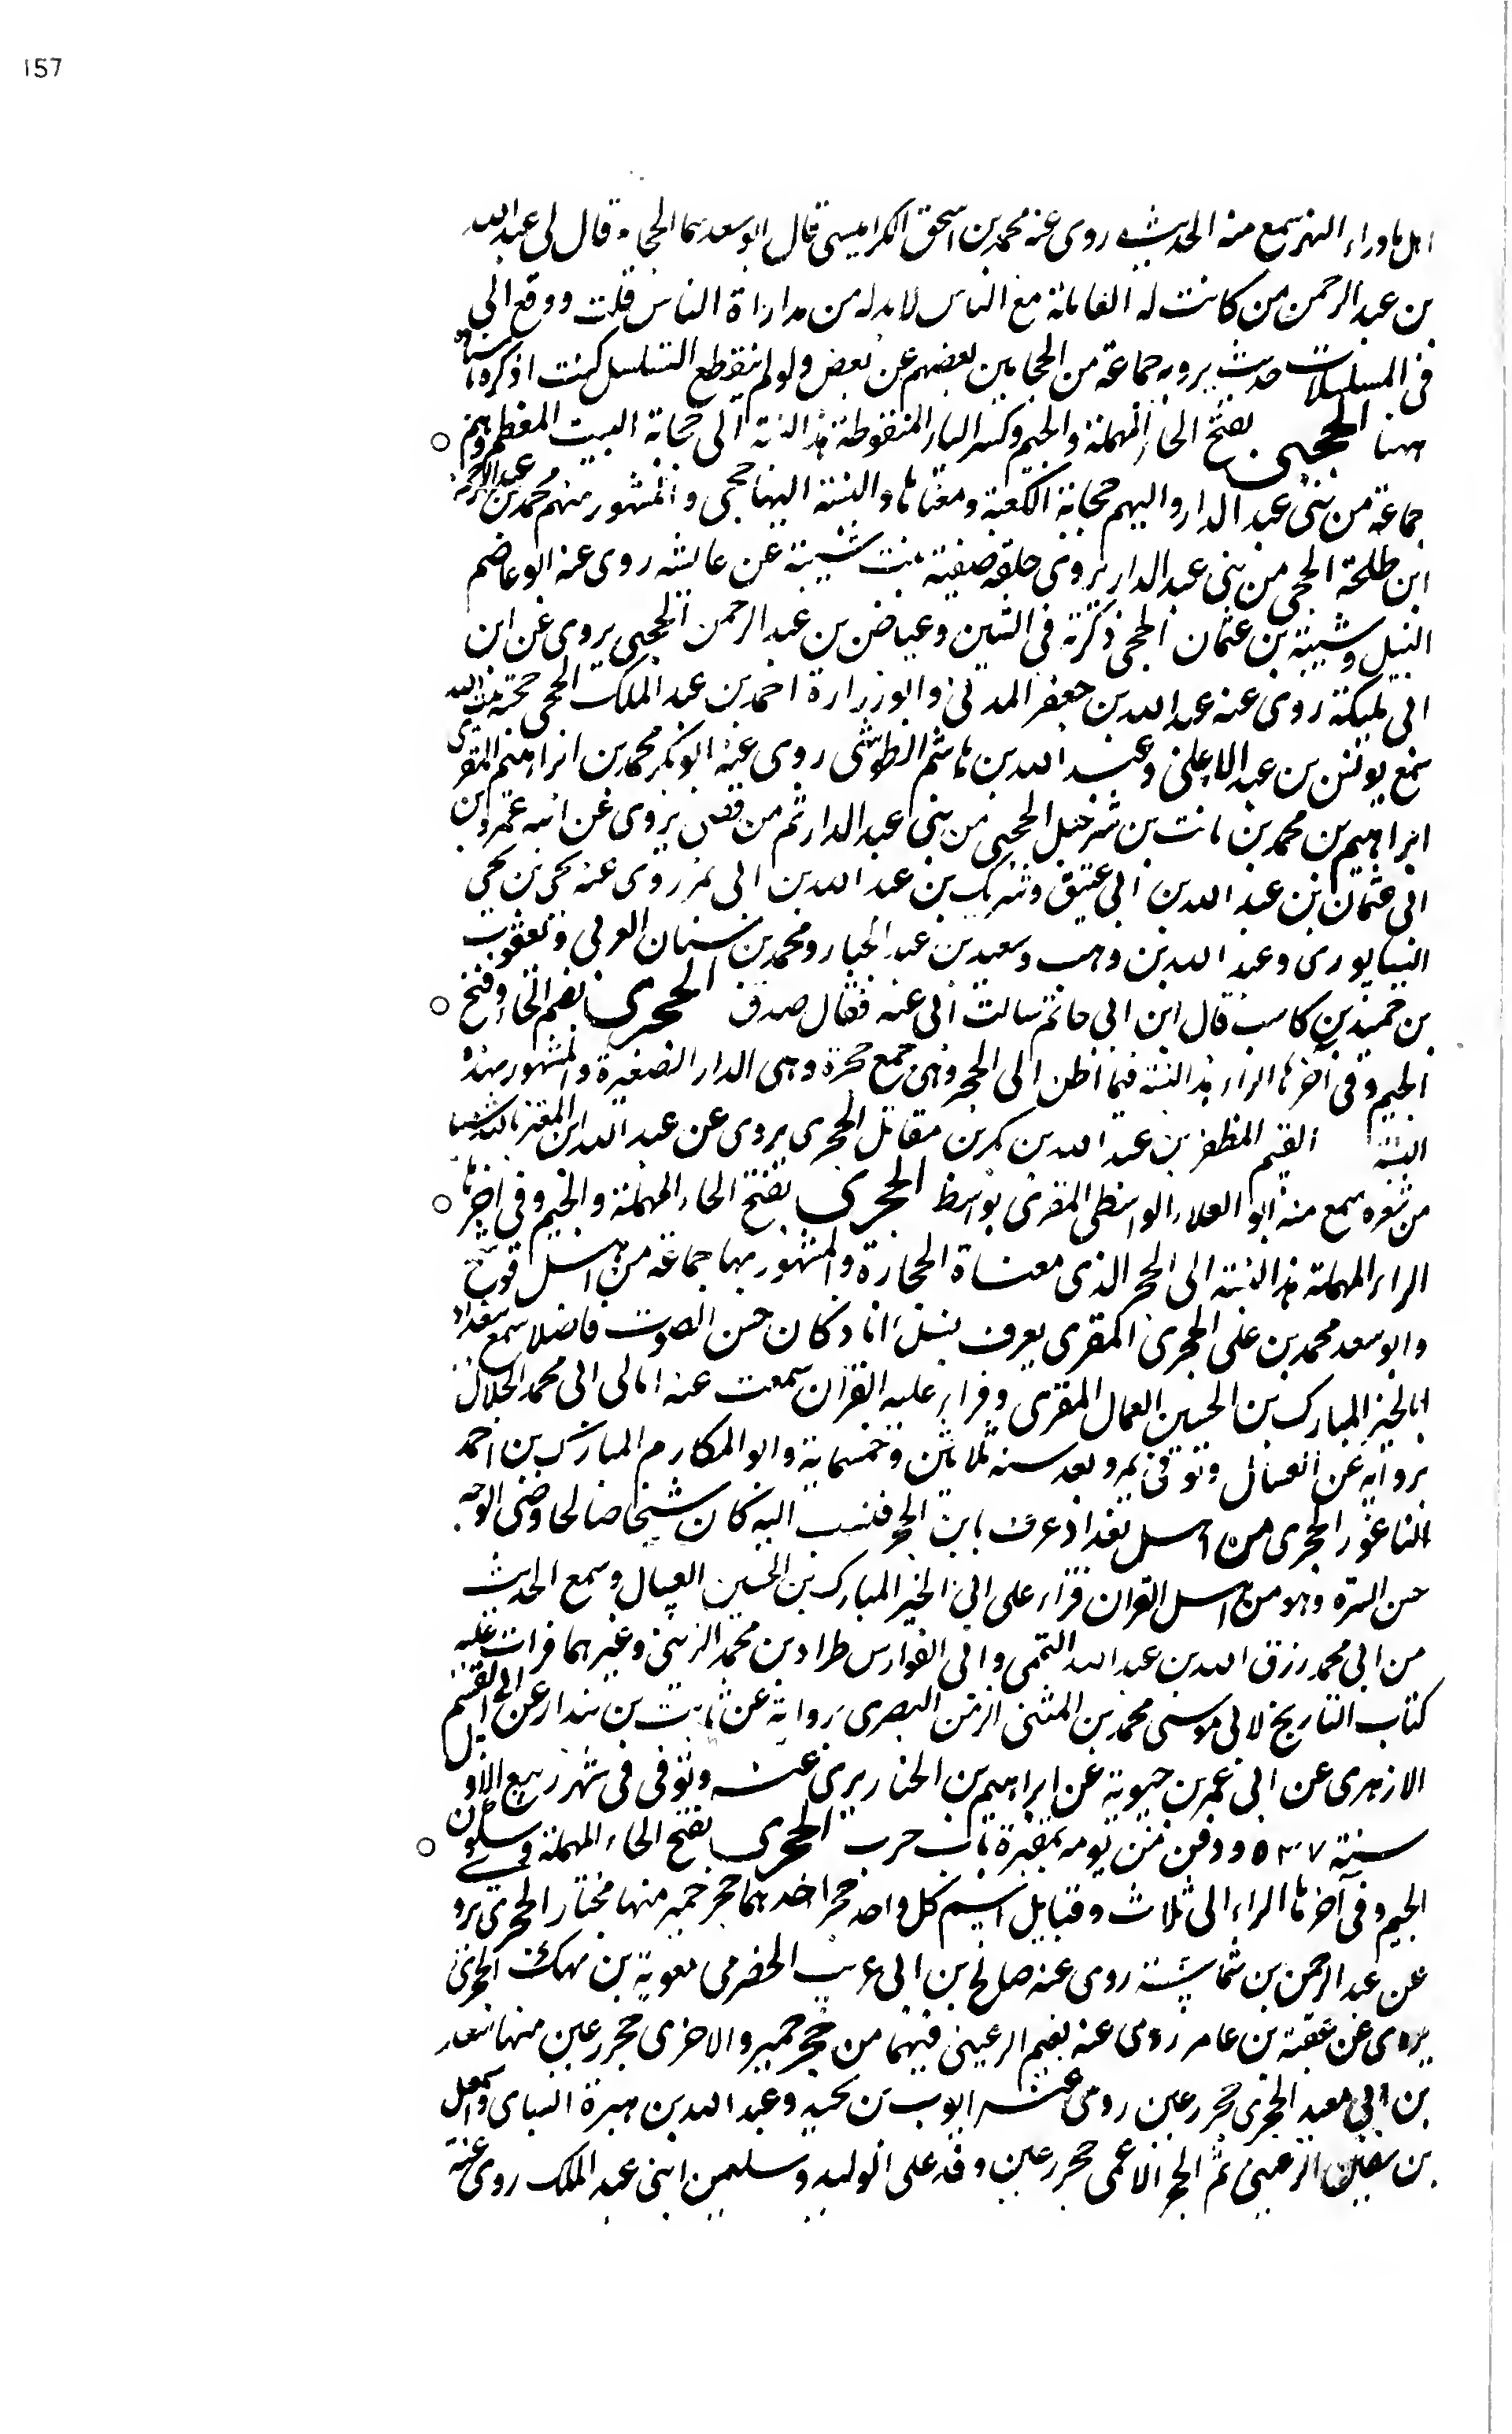 157
اهل ماوراء النهر سمع منه الحديث روى عنه محمد بن اسحق الكرابيسى قال ابو سعد سما الحجا٠ قال لى عبد الله
بن عبد الرحمن من كانت له القامة مع الناس لابد له من مداراة الناس قلت ووقع الى
فى المسلسلات حديث يرويه جماعة من الحجابين بعضهم عن بعض ولو لم ينقطع التسلسل كنت اذكره
ههنا الحجبى بفتح الحاء المهملة والجيم وكسر الباء المنقوطة هذا النسبة الى حجابة البيت المعظم وهم
جماعة من بنى عبد الدار واليهم حجابة الكعبة ومفتاحها والنسبة اليها حجبى والمشهور منهم محمد بن عبد الرحمن
ابن طلحة الحجبى من بنى عبد الدار يروى صفية بنت شيبة عن عايشه روى عنه ابو عاصم
النبيل وشيبة بن عثمان الحجبى ذكرته فى الشين وعياض بن عبد الرحمن الحجبى يروى عن ابن
ابى مليكة روى عنه عبد الله بن جعفر المدنى وابو زرارة احمد بن عبد الملك الحجبى
سمع يونس بن عبد الاعلى وعبد الله بن هاشم الطوسى روى عنه ابو بكر محمد بن ابراهيم المقرى
ابراهيم بن محمد بن ثابت بن شرحبيل الحجبى من بنى عبد الدار ثم من قصى يروى عن ابيه عمرو بن
ابى عثمان بن عبد الله بن ابى عتيق وشريك بن عبد الله بن ابى نمر روى عنه يحيى بن يحيى
النيسابورى وعبد الله بن وهب وسعيد بن عبد الجبار ومحمد بن سنان العوقى ويعقوب
بن حميد بن كاسب قال ابن ابى حاتم سالت ابى عنه فقال صدوق الحجرى بضم الحاء وفتح
الجيم وفى آخرها الراء هذا النسبة فيما اظن الى الحجر وهى جمع حجرة وهى الدار الصغيرة والمشهور بهذه
النسبة القسم المظفر بن عبد الله بن بكر بن مقاتل الحجرى يروى عن عبد الله ابن المعتز بالله شيا
من شعره سمع منه ابو العلاء الواسطى المقرى بواسط الحجرى بفتح الحاء المهملة والجيم وفى اخرها
الراء المهملة هذا النسبة الى الحجر الذى معناه الحجارة والمشهور بها جماعة من اهل
وابو سعد محمد بن على الحجرى المقرى يعرف بسنك انا وكان حسن الصوت فاضلا سمع ببغداد
ابا الخير المبارك بن الحسين الغسال المقرى وقراء عليه القران سمعت عنه امالى ابى محمد الخلال
بروايته عن الغسال وتوفى بمرو بعد سنة ثلاثين وخمسماية وابو المكارم المبارك بن احمد
الناعور الحجرى من اهل بغداد عرف بابن الحجر فنسب اليه كان شيخا صالحا وضى الوجه
حسن السيرة وهو من اهل القران قراء على ابى الخير المبارك بن الحسين الغسال وسمع الحديث
من ابى محمد رزق الله بن عبد الله التميمى وابى الفوارس طراد بن محمد الزينبى وغيرهما قرات عليه
كتاب التاريخ لابى موسى محمد بن المثنى الزمن البصرى بروايته عن ثابت بن بندار عن ابى القسم
الازهرى عن ابى عمر بن حيوية عن ابراهيم بن الجنازيرى عنه وتوفى فى شهر ربيع الاول
سنة ٥٣٧ ودفن من يومه بمقبرة باب حرب الحجرى بفتح الحاء المهملة وسكون
الجيم وفى آخرها الراء الى ثلاث وقبايل اسم كل واحد حجر احدهما حجر حمير منها مختار الحجرى يروى
عن عبد الرحمن بن شماسة روى عنه صالح بن ابى عريب الحضرمى معوية بن نهيك الحجرى
يروى عن عقبة بن عامر روى عنه نعيم الرعينى فيهما من حجر حمير والاخرى حجر رعين منها سعد
بن ابى سعيد الحجرى حجر رعين روى عنه ايوب بن بحيد وعبد الله بن هبيرة السباى واسمعيل
بن سفين الرعينى ثم الحجرى الاعمى حجر رعين وفد على الوليد وسليمن ابنى عبد الملك روى عنه